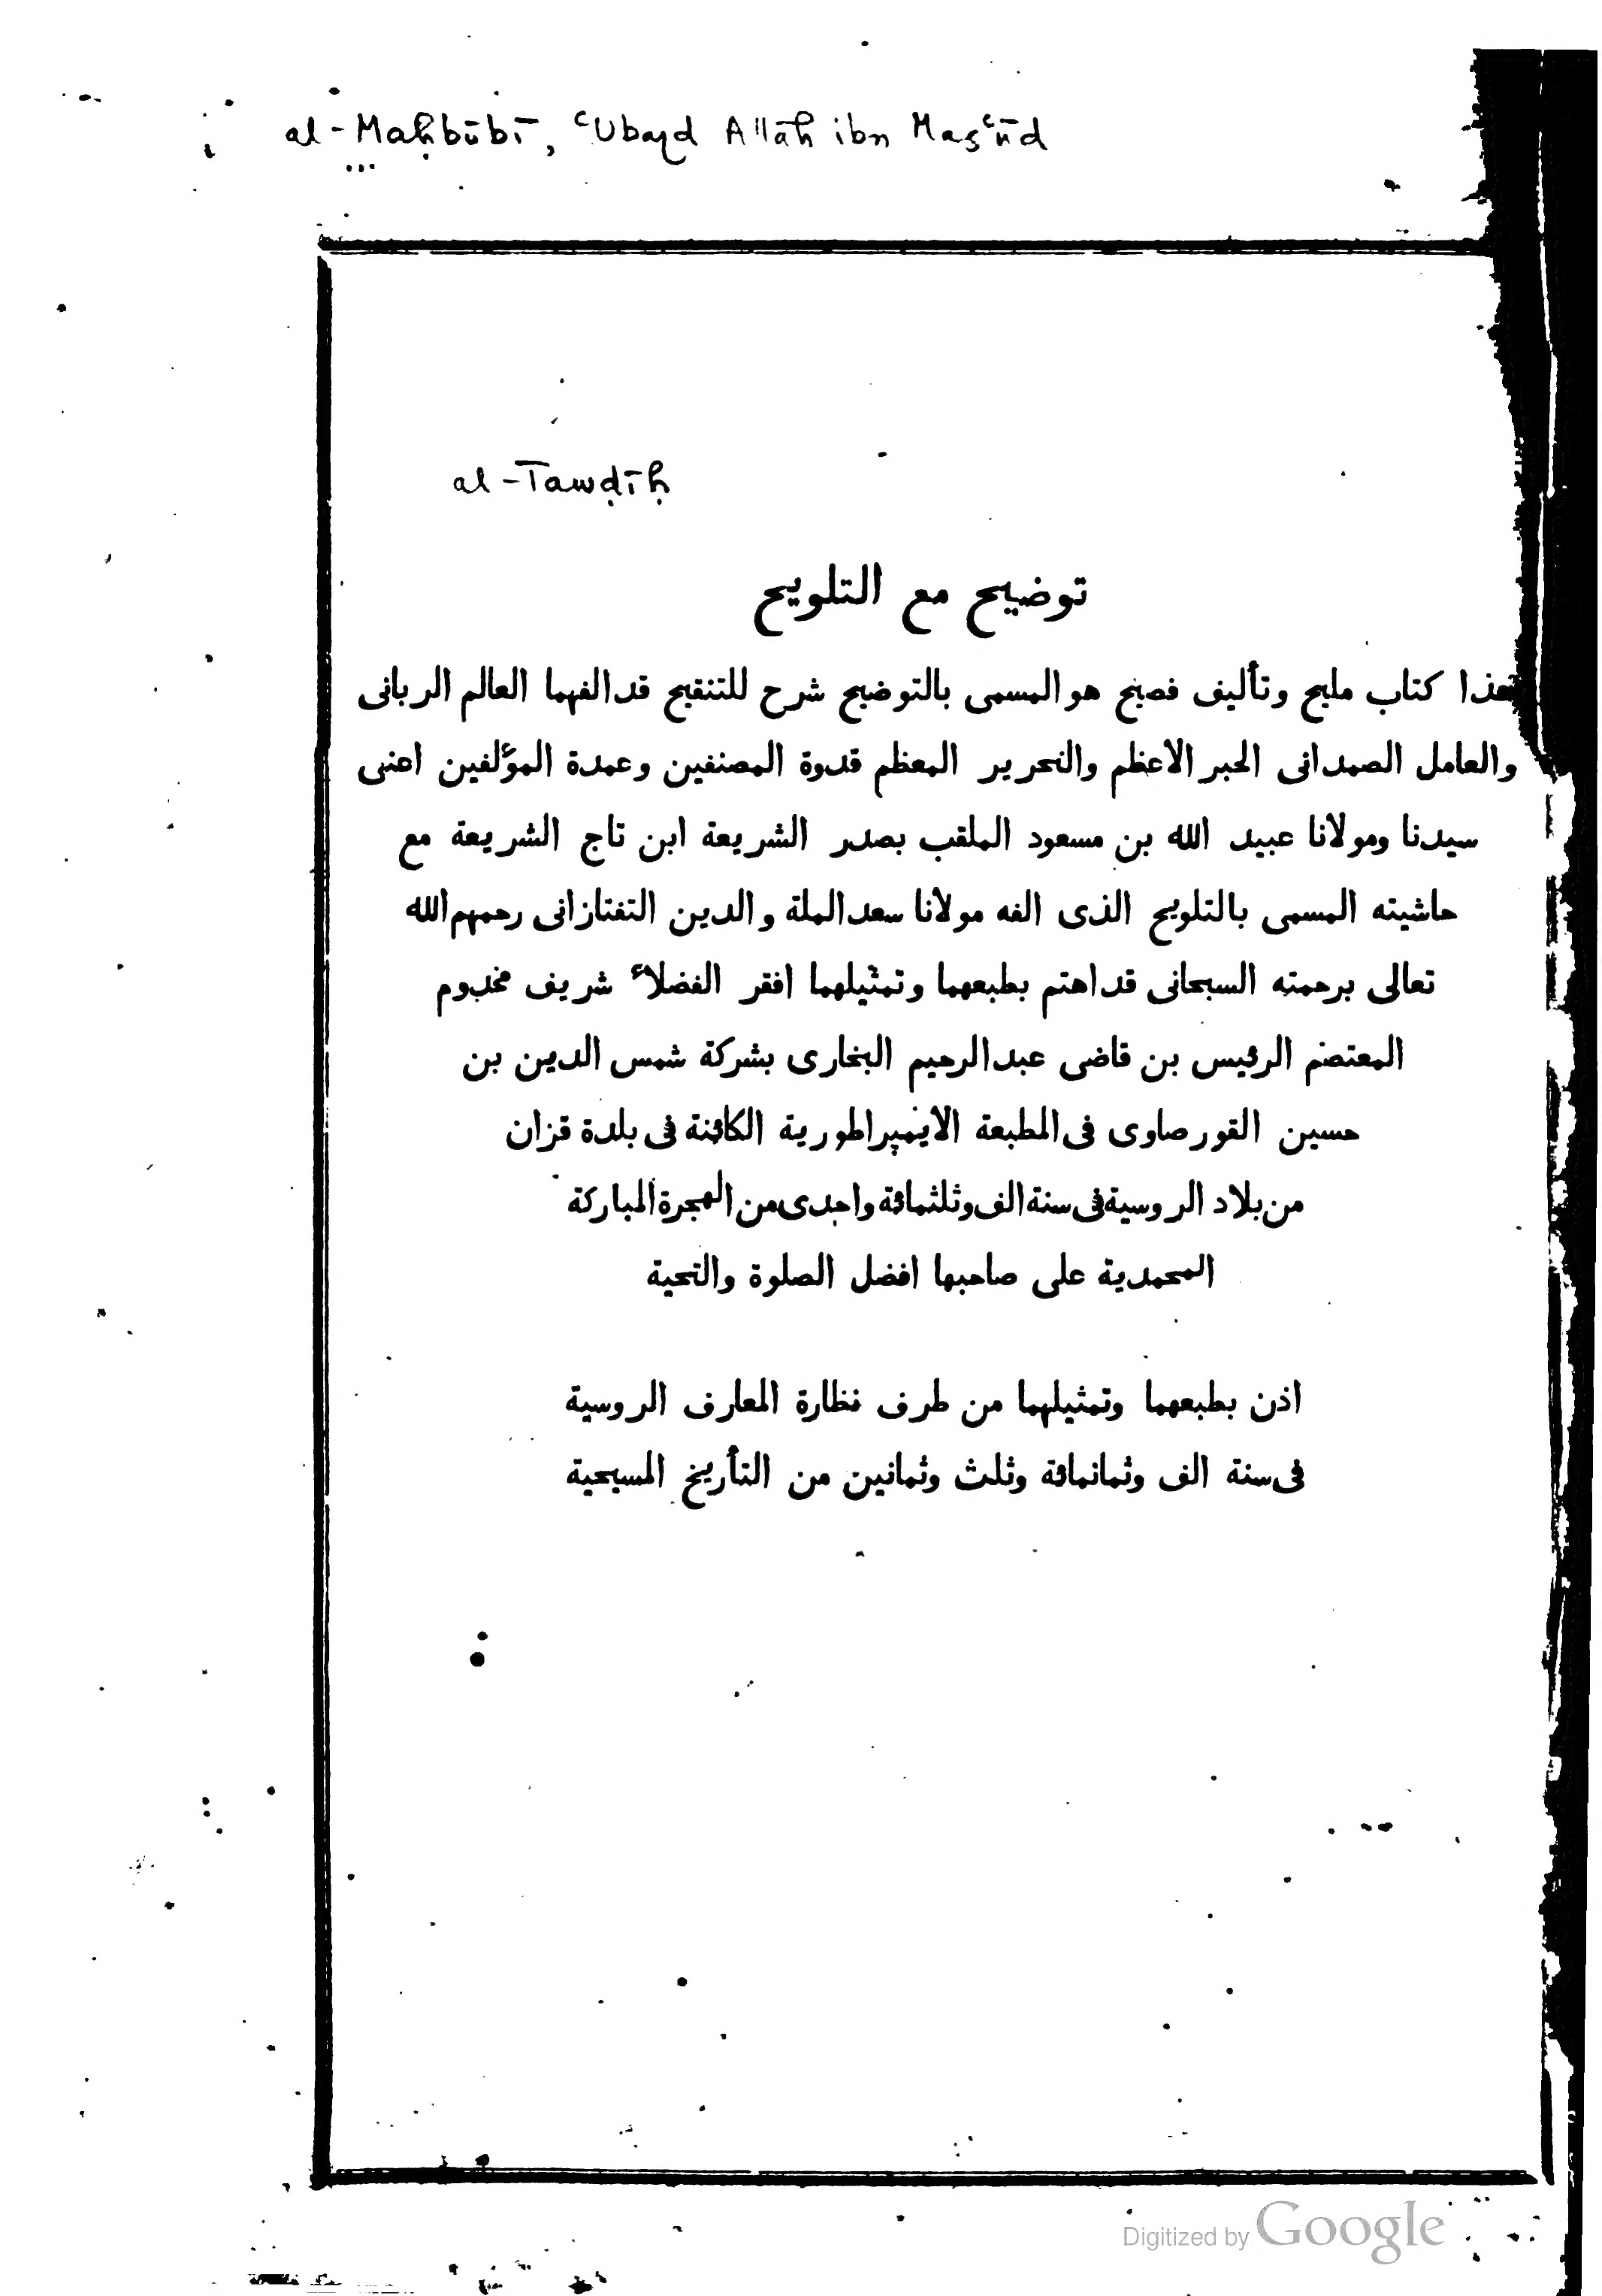 al-Maḥbūbī, ʿUbayd Allāh ibn Masʿūd
...
al-Tawḍīḥ
توضيح مع التلويح
هذا كتاب مليح وتأليف فصيح هو المسمى بالتوضيح شرح للتنقيح قد الفهما العالم الربانى
والعامل الصمدانى الحبر الاعظم والنحرير المعظم قدوة المصنفين وعمدة المؤلفين اعنى
سيدنا ومولانا عبيد الله بن مسعود الملقب بصدر الشريعة ابن تاج الشريعة مع
حاشيته المسمى بالتلويح الذى الفه مولانا سعد الملة والدين التفتازانى رحمهم الله
تعالى برحمته السبحانى قد اهتم بطبعهما وتمثيلهما افقر الفضلاء شريف مخدوم
المعتصم الرئيس بن قاضى عبد الرحيم البخارى بشركة شمس الدين بن
حسين القورصاوى فى المطبعة الايمپراطورية الكائنة فى بلدة قزان
من بلاد الروسية فى سنة الف وثلثمائة واحدى من الهجرة المباركة
المحمدية على صاحبها افضل الصلوة والتحية
اذن بطبعهما وتمثيلهما من طرف نظارة المعارف الروسية
فى سنة الف وثمانمائة وثلث وثمانين من التأريخ المسيحية
Digitized by Google